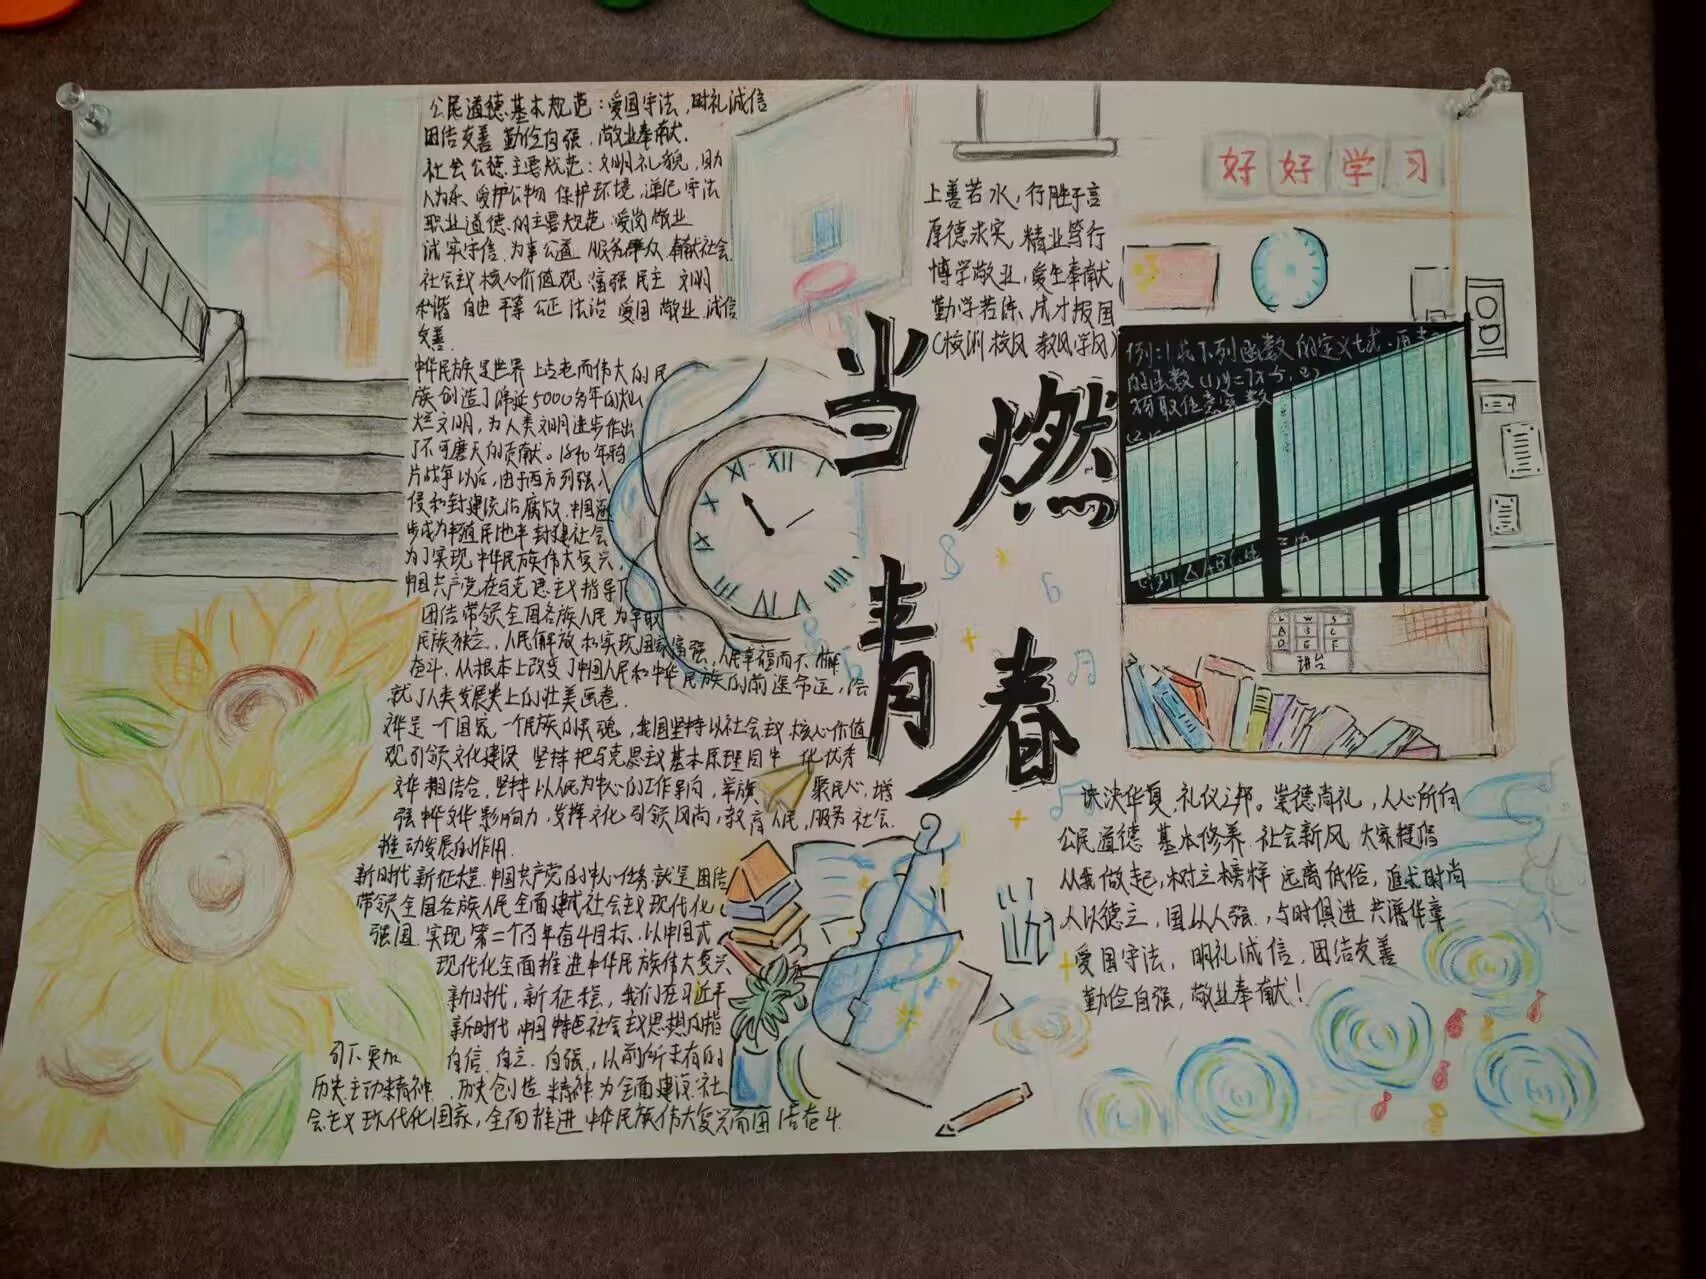 公民道德基本规范：爱国守法，明礼诚信
团结友善 勤俭自强，敬业奉献.
社会公德主要规范：文明礼貌，助
人为乐 爱护公物 保护环境，遵纪守法
职业道德的主要规范 爱岗敬业
诚实守信 为事公道 服务群众 奉献社会
社会主义核心价值观 富强 民主 文明
和谐 自由 平等 公正 法治 爱国 敬业 诚信
友善.
中华民族是世界上古老而伟大的民
族 创造了绵延5000多年的灿
烂文明，为人类文明进步作出
了不可磨灭的贡献。1840年鸦
片战争以后，由于西方列强入
侵和封建统治腐败，中国逐
步成为半殖民地半封建社会
为了实现中华民族伟大复兴，
中国共产党在马克思主义指导下
团结带领全国各族人民为争取
民族独立，人民解放和实现国家富强，人民幸福而不懈
奋斗，从根本上改变了中国人民和中华民族的前途命运，绘
就了人类发展史上的壮美画卷.
是一个国家 一个民族的灵魂，我国坚持以社会主义核心价值
观引领文化建设 坚持把马克思主义基本原理同中 优秀
相结合，坚持以人民为中心的工作导向，举旗 聚民心，增
强 影响力，发挥文化引领风尚，教育人民，服务社会
推动发展的作用.
新时代新征程，中国共产党的中心任务就是团结
带领全国各族人民全面建成社会主义现代化
强国，实现第二个百年奋斗目标，以中国式
现代化全面推进中华民族伟大复兴
新时代，新征程，我们在习近平
新时代中国特色社会主义思想的指
引下更加 自信 自立 自强，以前所未有的
历史主动精神 历史创造精神为全面建设社
会主义现代化国家，全面推进中华民族伟大复兴而团结奋斗.
当燃
青春
上善若水，行胜于言
厚德求实，精业笃行
博学敬业，爱生奉献
勤学苦练，成才报国
(校训 校风 教风 学风)
好好学习
XI XII
例:1求下列函数的定义域
的函数(1)
取任意实数
讲台
泱泱华夏，礼仪之邦。崇德尚礼，人心所向
公民道德 基本修养 社会新风 大家提倡
从我做起，树立榜样 远离低俗，追求时尚
人以德立，国以人强，与时俱进 共谱华章
爱国守法，明礼诚信，团结友善
勤俭自强，敬业奉献！